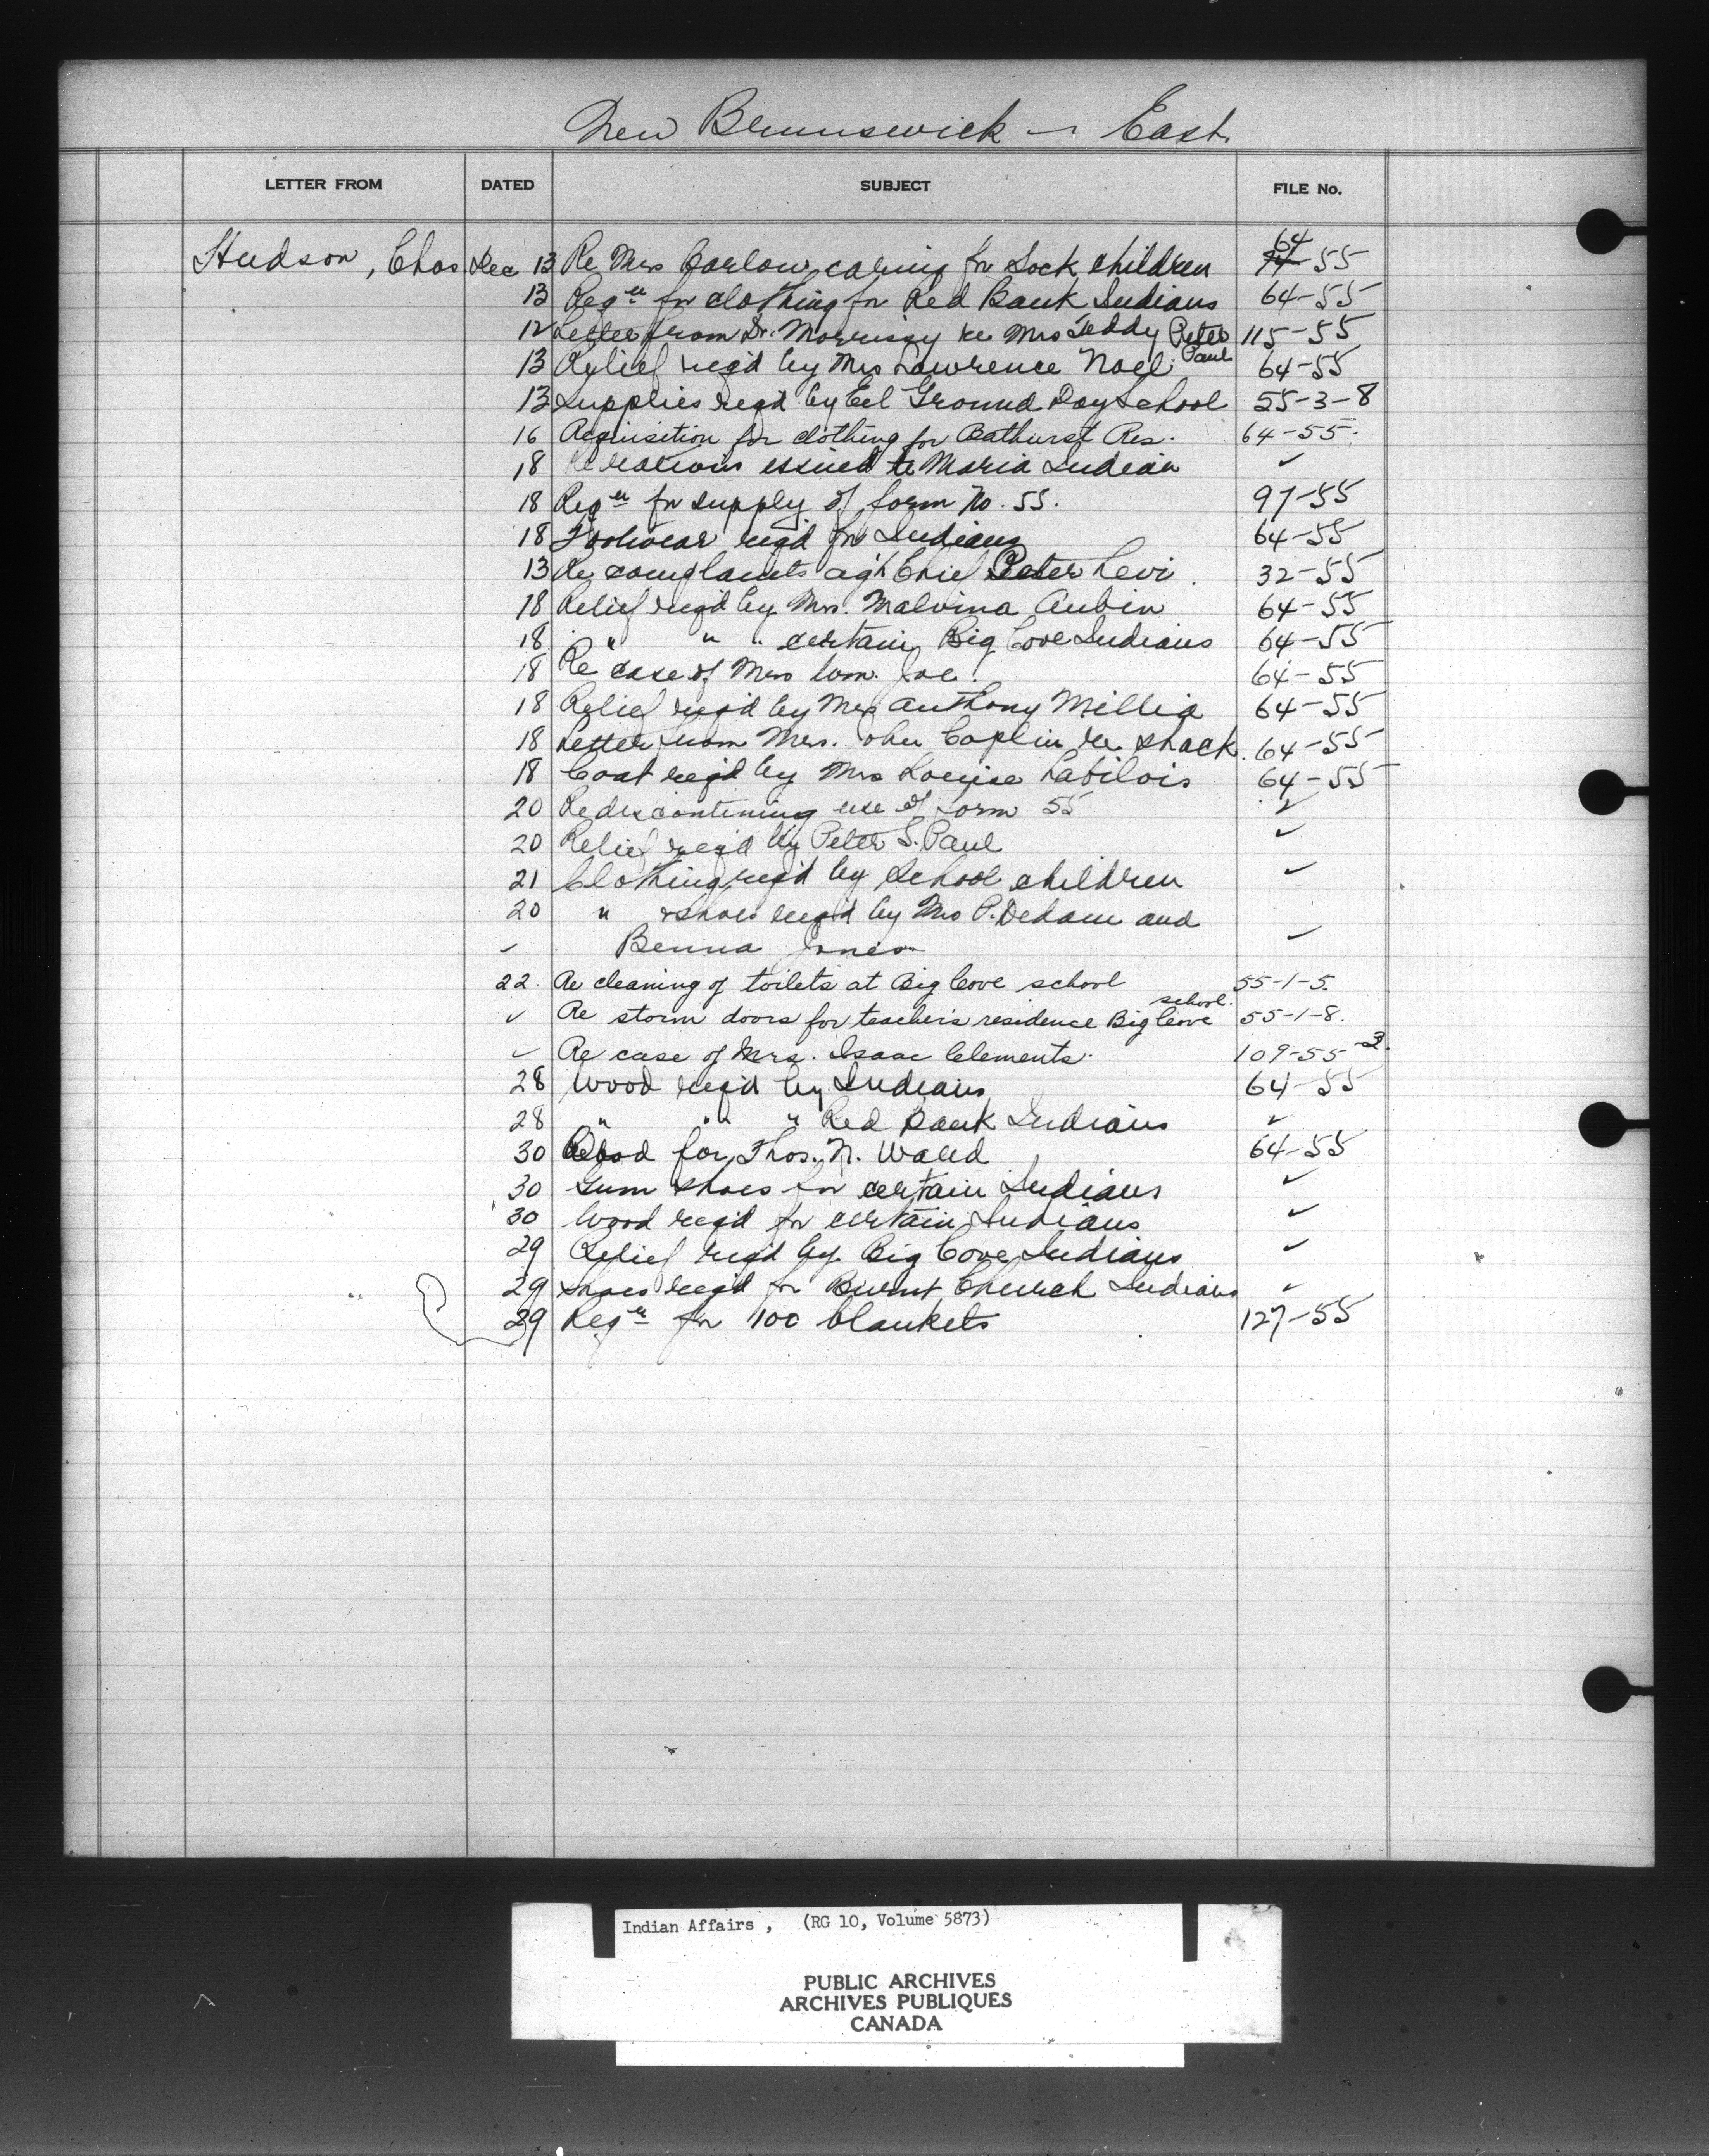 New Brunswick - East.
LETTER FROM DATED SUBJECT FILE No.
Hudson, Chas Dec 13 Re Mrs Carlow caring for Sock children 64-55
13 Reqn for clothing for Red Bank Indians 64-55
12 Letter from Dr. Morrissy re Mrs Teddy Peter Paul 115-55
13 Relief req'd by Mrs Lawrence Noel 64-55
13 Supplies req'd by Eel Ground Day School 55-3-8
16 Requisition for clothing for Bathurst Res. 64-55.
18 Re rations issued to Maria Indian ✓
18 Reqn for supply of form No. 55. 97-55
18 Footwear req'd for Indians 64-55
13 Re complaints ag't Chief Peter Levi. 32-55
18 Relief req'd by Mrs. Malvina Aubin 64-55
18 " " " certain Big Cove Indians 64-55
18 Re case of Mrs Wm. Joe. 64-55
18 Relief req'd by Mrs Anthony Millia 64-55
18 Letter from Mrs. John Caplin re shack. 64-55
18 Coat req'd by Mrs Louise Labilois 64-55
20 Re discontinuing use of Form 55 ✓
20 Relief req'd by Peter S. Paul ✓
21 Clothing req'd by School children ✓
20 " & shoes req'd by Mrs P. Dedam and
✓ Benna Jones ✓
22. Re cleaning of toilets at Big Cove school 55-1-5.
✓ Re storm doors for teacher's residence Big Cove school. 55-1-8.
✓ Re case of Mrs. Isaac Clements. 109-55-3.
28 Wood req'd by Indians 64-55
28 " " " Red Bank Indians ✓
30 Wood for Thos. N. Ward 64-55
30 Gum shoes for certain Indians ✓
30 Wood req'd for certain Indians ✓
29 Relief req'd by Big Cove Indians ✓
29 Shoes req'd for Burnt Church Indians ✓
29 Reqn for 100 blankets 127-55
Indian Affairs, (RG 10, Volume 5873)
PUBLIC ARCHIVES
ARCHIVES PUBLIQUES
CANADA